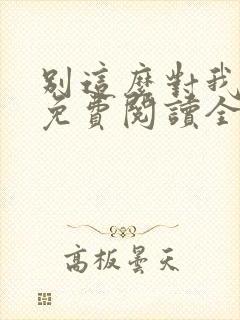 別這麼對我
免費閱讀全
高板曇天